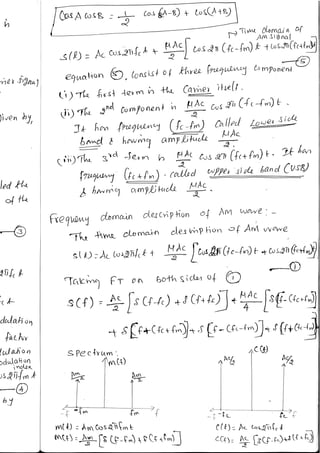 Cos A cos B = 1/2 cos (A-B) + cos (A+B)
→ Time domain of AM signal
s(t) = Ac cos2πfct + MAc/2 [cos 2π (fc-fm)t + cos2π(fc+fm)t] — (5)
equation (5), consist of three frequency component
(i) The first term is the carrier itself.
(ii) The 2nd component is MAc/2 cos 2π (fc-fm)t.
It has frequency (fc-fm) called Lower side
band & having amplitude MAc/2.
(iii) The 3rd term is MAc/2 cos 2π (fc+fm)t. It has
frequency (fc+fm). called upper side band (USB)
& having amplitude MAc/2.
Frequency domain description of AM wave :-
The time domain description of AM wave
s(t) = Ac cos2πfct + MAc/2 [cos2π(fc-fm)t + cos2π(fc+fm)t] — (1)
Taking FT on both sides of (1)
S(f) = Ac/2 [δ(f-fc) + δ(f+fc)] + MAc/4 [δ(f-(fc+fm)
+ δ[f+(fc+fm)] + δ[f-(fc-fm)] + δ[f+(fc-fm)
Spectrum:
m(t)
Am/2
Am/2
-f
-fm
fm
f
c(t)
Ac/2
Ac/2
-f
-fc
fc
f
m(t) = Am cos2πfmt
c(t) = Ac cos2πfct
m(f) = Am/2 [δ(f-fm) + δ(f+fm)]
c(f) = Ac/2 [δ(f-fc) + δ(f+fc)]
given by,
of the
(3)
index
(4)
by